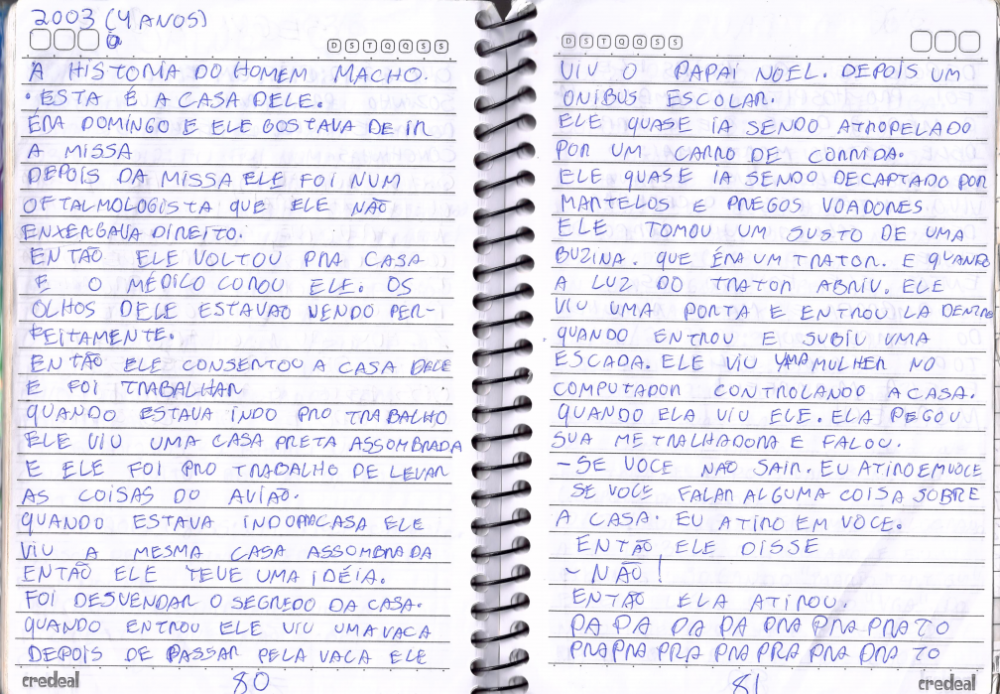 2003 (4 ANOS)
D S T Q Q S S
A HISTORIA DO HOMEM MACHO.
ESTA É A CASA DELE.
ERA DOMINGO E ELE GOSTAVA DE IR
A MISSA
DEPOIS DA MISSA ELE FOI NUM
OFTALMOLOGISTA QUE ELE NÃO
ENXERGAVA DIREITO.
ENTÃO ELE VOLTOU PRA CASA
E O MÉDICO COROU ELE. OS
OLHOS DELE ESTAVAO VENDO PER-
FEITAMENTE.
ENTÃO ELE CONSERTOU A CASA DELE
E FOI TRABALHAR
QUANDO ESTAVA INDO PRO TRABALHO
ELE VIU UMA CASA PRETA ASSOMBRADA
E ELE FOI PRO TRABALHO DE LEVAR
AS COISAS DO AVIÃO.
QUANDO ESTAVA INDO PRA CASA ELE
VIU A MESMA CASA ASSOMBRADA
ENTÃO ELE TEVE UMA IDÉIA.
FOI DESVENDAR O SEGREDO DA CASA.
QUANDO ENTROU ELE VIU UMA VACA
DEPOIS DE PASSAR PELA VACA ELE
credeal
80
D S T Q Q S S
VIU O PAPAI NOEL. DEPOIS UM
ONIBUS ESCOLAR.
ELE QUASE IA SENDO ATROPELADO
POR UM CARRO DE CORRIDA.
ELE QUASE IA SENDO DECAPTADO POR
MARTELOS E PREGOS VOADORES
ELE TOMOU UM SUSTO DE UMA
BUZINA. QUE ERA UM TRATOR. E QUANDO
A LUZ DO TRATOR ABRIU. ELE
VIU UMA PORTA E ENTROU LA DENTRO
QUANDO ENTROU E SUBIU UMA
ESCADA. ELE VIU UMA MULHER NO
COMPUTADOR CONTROLANDO A CASA.
QUANDO ELA VIU ELE. ELA PEGOU
SUA METRALHADORA E FALOU.
- SE VOCE NAO SAIR. EU ATIRO EM VOCE
SE VOCE FALAR ALGUMA COISA SOBRE
A CASA. EU ATIRO EM VOCE.
ENTÃO ELE DISSE
- NÃO!
ENTÃO ELA ATIROU.
PA PA PA PA PRA PRA PRA TO
PRA PRA PRA PRA PRA PRA PRA TO
credeal
81